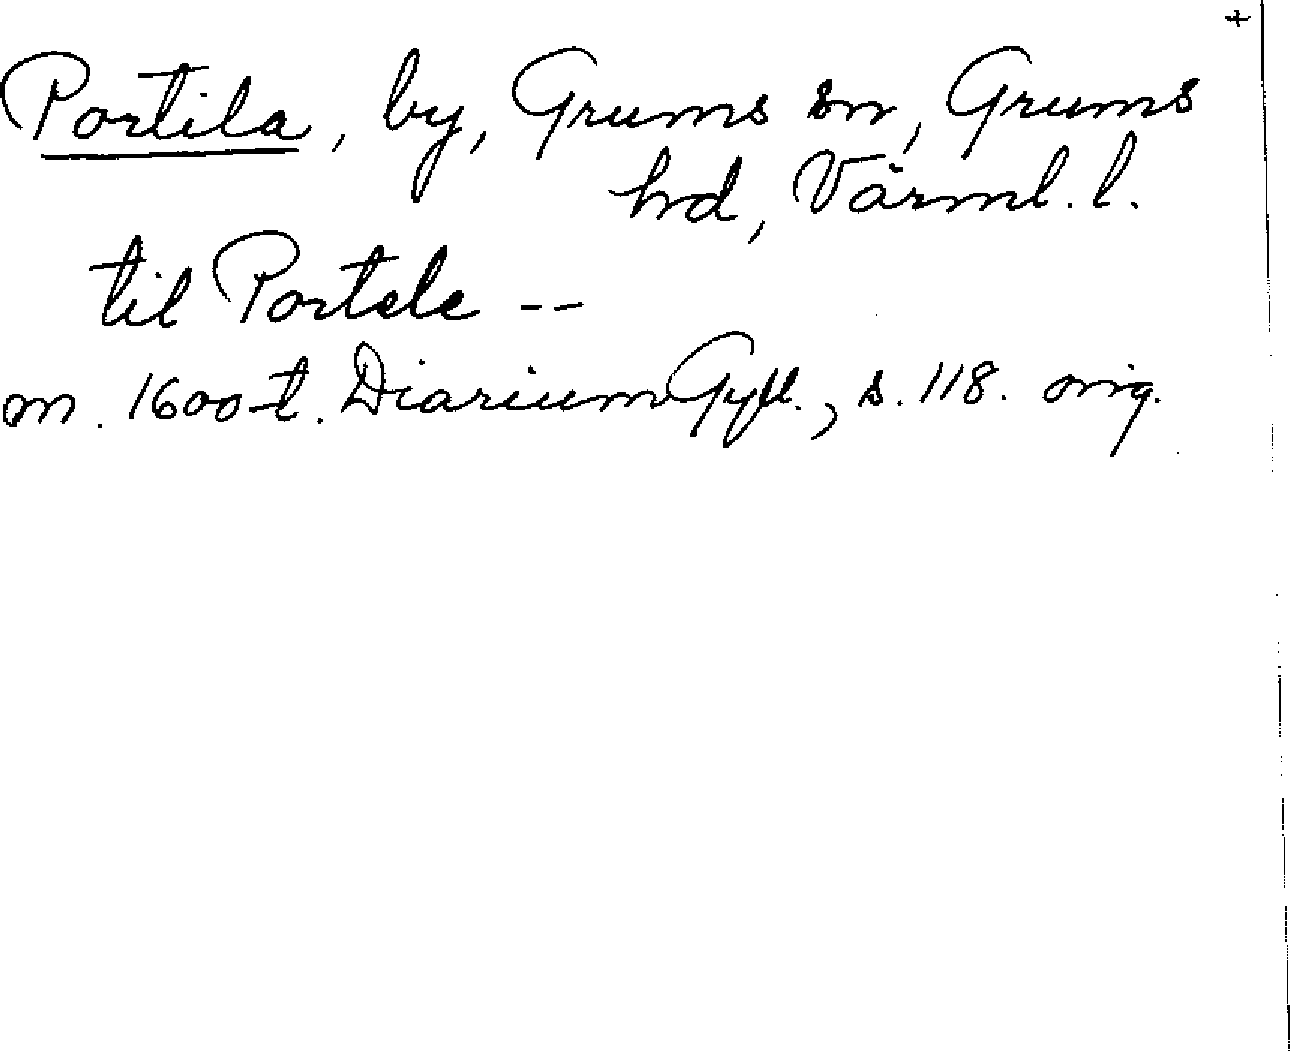 +
Portila, by, Grums sn, Grums
hd, Värml. l.
til Portele --
m. 1600-t. Diarium Gyll., s. 118. orig.